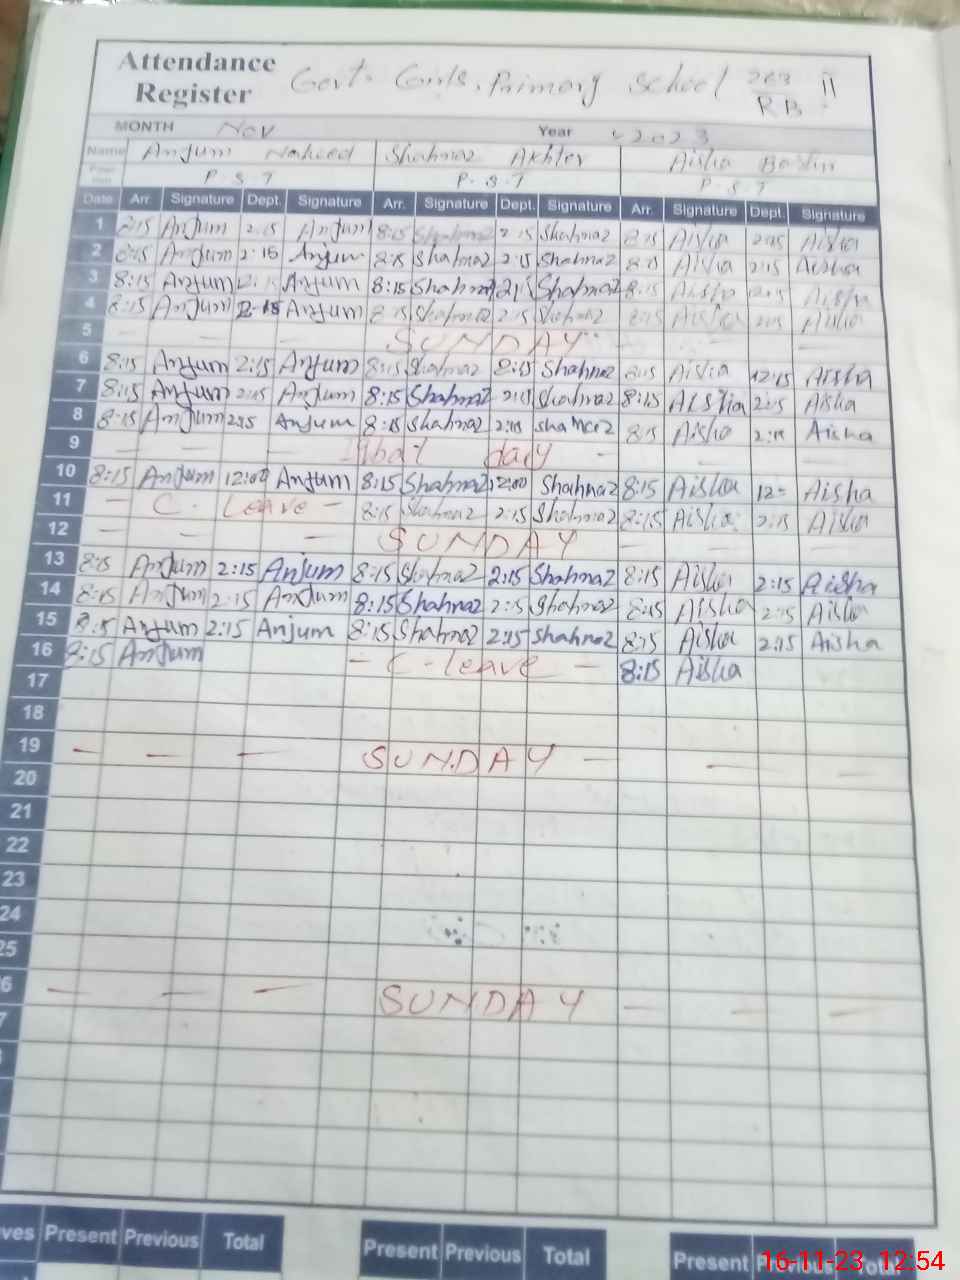 Attendance Register Govt. Girls. Primary School 263 RB II
MONTH Nov Year 2023
Name Anjum Naheed Shahnaz Akhter Aisha
P.S.T P.S.T P.S.T
Date Arr. Signature Dept. Signature Arr. Signature Dept. Signature Arr. Signature Dept. Signature
1 8:15 Anjum 2:15 Anjum 8:15 Shahnaz 2:15 Shahnaz 8:15 Aisha 2:15 Aisha
2 8:15 Anjum 2:15 Anjum 8:15 Shahnaz 2:15 Shahnaz 8:15 Aisha 2:15 Aisha
3 8:15 Anjum Anjum 8:15 Shahnaz Shahnaz 8:15 Aisha 2:15 Aisha
4 8:15 Anjum 2:15 Anjum 8:15 Shahnaz 2:15 Shahnaz 8:15 Aisha 2:15 Aisha
5 — SUNDAY —
6 8:15 Anjum 2:15 Anjum 8:15 Shahnaz 8:15 Shahnaz 8:15 Aisha 12:15 Aisha
7 8:15 Anjum 2:15 Anjum 8:15 Shahnaz 2:15 Shahnaz 8:15 Aisha 2:15 Aisha
8 8:15 Anjum 2:15 Anjum 8:15 Shahnaz 2:15 Shahnaz 8:15 Aisha 2:15 Aisha
9 — — — Iqbal day — — —
10 8:15 Anjum 12:00 Anjum 8:15 Shahnaz 12:00 Shahnaz 8:15 Aisha 12= Aisha
11 — C. Leave — 8:15 Shahnaz 2:15 Shahnaz 8:15 Aisha 2:15 Aisha
12 — — — SUNDAY — — —
13 8:15 Anjum 2:15 Anjum 8:15 Shahnaz 2:15 Shahnaz 8:15 Aisha 2:15 Aisha
14 8:15 Anjum 2:15 Anjum 8:15 Shahnaz 2:15 Shahnaz 8:15 Aisha 2:15 Aisha
15 8:15 Anjum 2:15 Anjum 8:15 Shahnaz 2:15 Shahnaz 8:15 Aisha 2:15 Aisha
16 8:15 Anjum — C-leave — 8:15 Aisha
17
18
19 — — — SUNDAY — — —
20
21
22
23
24
25
6 — — — SUNDAY — — —
7
ves Present Previous Total Present Previous Total Present Previous Total
16-11-23 12:54